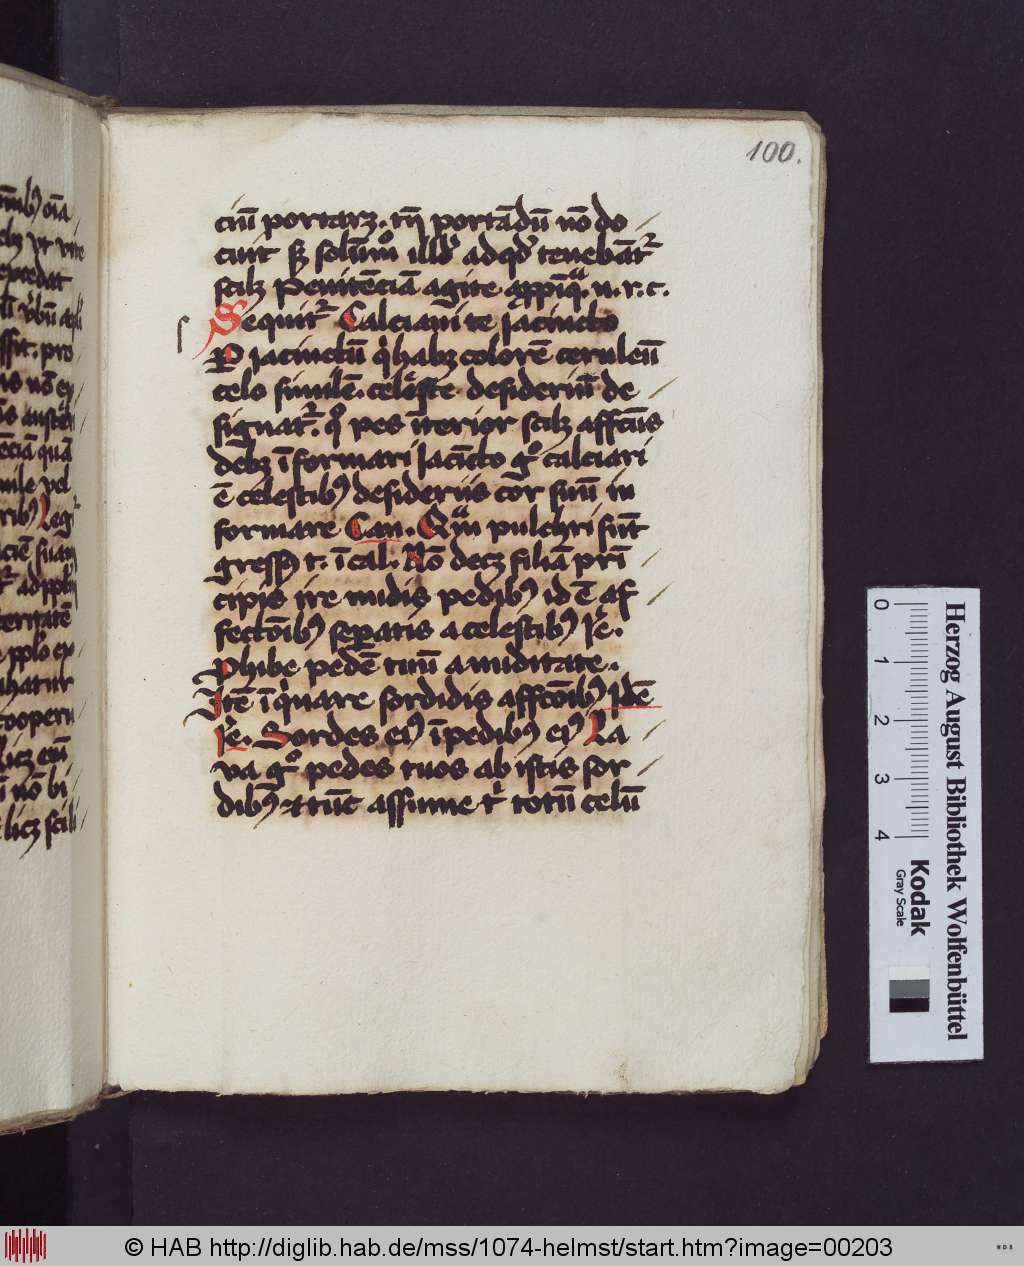 100.
ciu͞ portarꝫ. tñ portãdũ nõ do
cuit sꝫ solũmº illud ad qd̕ teneba͂t᷑
scilꝫ Penitẽciã agite appĩqᵃ. n. r. c.
Sequit᷑ Calciaui te Jacincto
Per Jacinctũ qͥ habꝫ colorẽ ceruleũ
celo similẽ. celeste desideriũ de
signat᷑. qº pes ĩterior scilꝫ affcũs
debꝫ ĩformari Jacĩcto gº calciari
ẽ celestibꝰ desideriis cor suũ in
formare Can. Qᵃm pulchri sũt
gressꝰ t. ĩ cal. Nõ decꝫ filiã prĩ
cipis ire nudis pedibꝰ id ẽ af
fectõibꝰ seꝑatis a celestibꝰ Jr̃e.
Phibe pedẽ tuũ a nuditate.
Itẽ ĩqͥnare sordidis affcõibꝰ Idẽ
Jr̃e. Sordes eiꝰ ĩ pedibꝰ eiꝰ La
va gº pedes tuos ab istis sor
dibꝰ et tũc assume tͥ totũ celũ
Herzog August Bibliothek Wolfenbüttel
Kodak
Gray Scale
0 1 2 3 4
© HAB http://diglib.hab.de/mss/1074-helmst/start.htm?image=00203